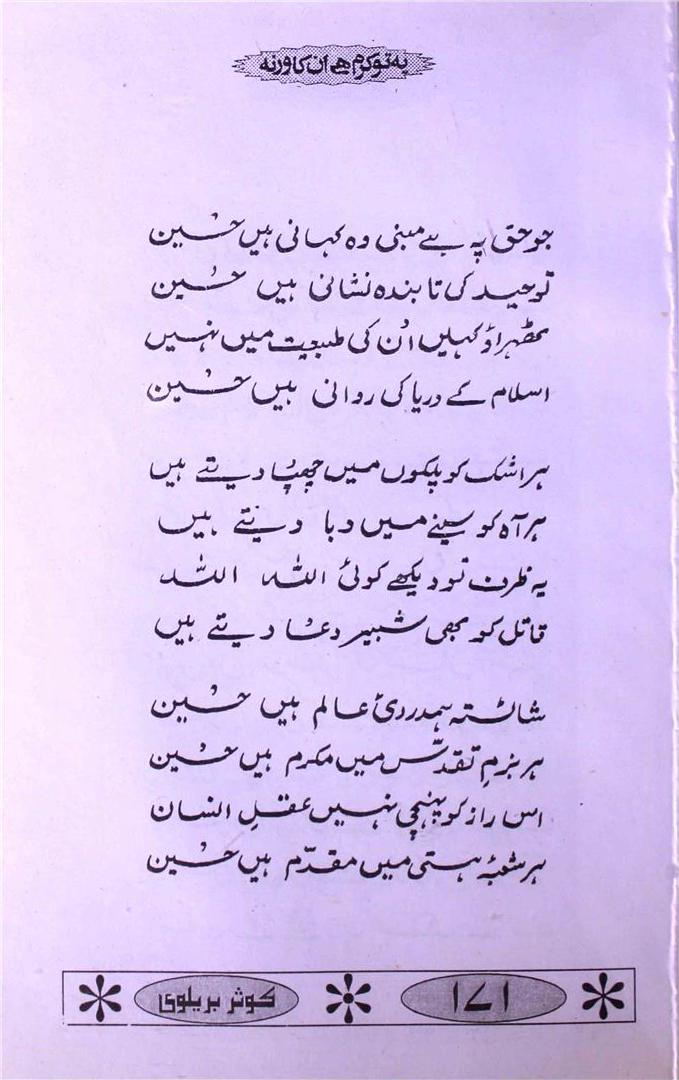 یہ تو کرم ھے ان کا ورنہ
جو حق پہ ہے مبنی وہ کہانی ہیں حُسین
توحید کی تابندہ نشانی ہیں حُسین
ٹھہراؤ کہیں اُن کی طبیعت میں نہیں
اسلام کے دریا کی روانی ہیں حُسین
ہر اشک کو پلکوں میں چُھپا دیتے ہیں
ہر آہ کو سینے میں دبا دیتے ہیں
یہ ظرف تو دیکھے کوئی اللہ اللہ
قاتل کو بھی شبیر دعا دیتے ہیں
شائستہ ہمدردیٔ عالم ہیں حُسین
ہر بزمِ تقدّس میں مکرم ہیں حُسین
اس راز کو پہنچی نہیں عقلِ انسان
ہر شعبۂ ہستی میں مقدّم ہیں حُسین
کوثر بریلوی ۱۷۱